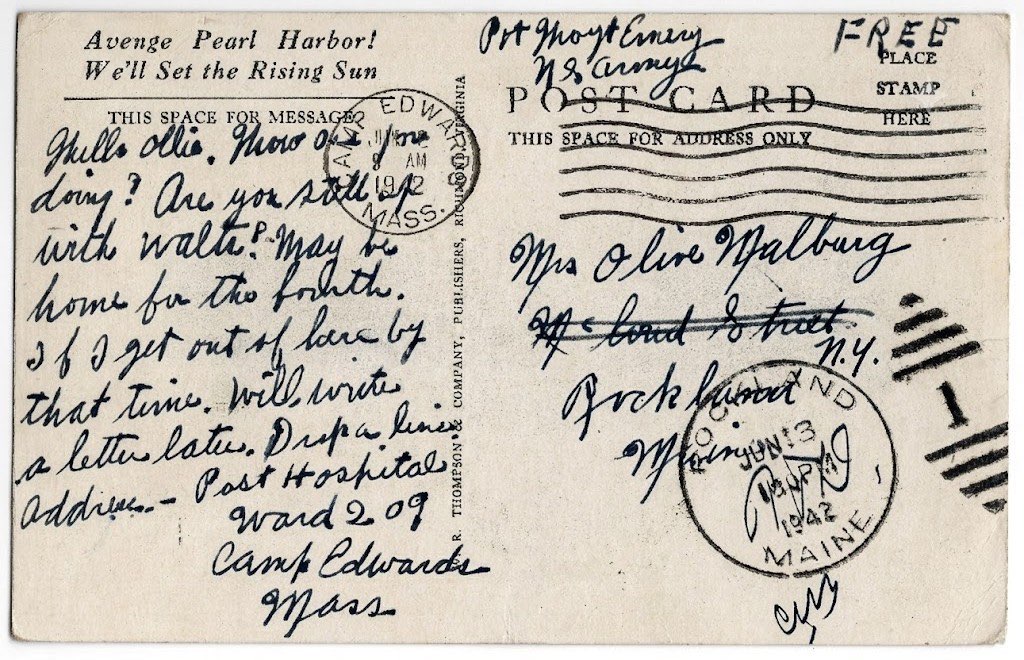 Avenge Pearl Harbor!
We'll Set the Rising Sun
THIS SPACE FOR MESSAGE
Hello Ollie. How
doing? Are you still up
with Walts? May be
home for the fourth.
If I get out of here by
that time. Will write
a letter later. Drop a line
Address - Post Hospital
Ward 209
Camp Edwards
Mass
R. THOMPSON & COMPANY, PUBLISHERS, RICHMOND, VIRGINIA
CAMP EDWARDS
JUN
9 AM
1942
MASS.
Pvt Hoyt Emery
US Army
FREE
PLACE
STAMP
HERE
POST CARD
THIS SPACE FOR ADDRESS ONLY
Mrs Olive Malburg
Mc Loud Street
N.Y.
Rockland
Maine
1
ROCKLAND
JUN 13
1942
MAINE